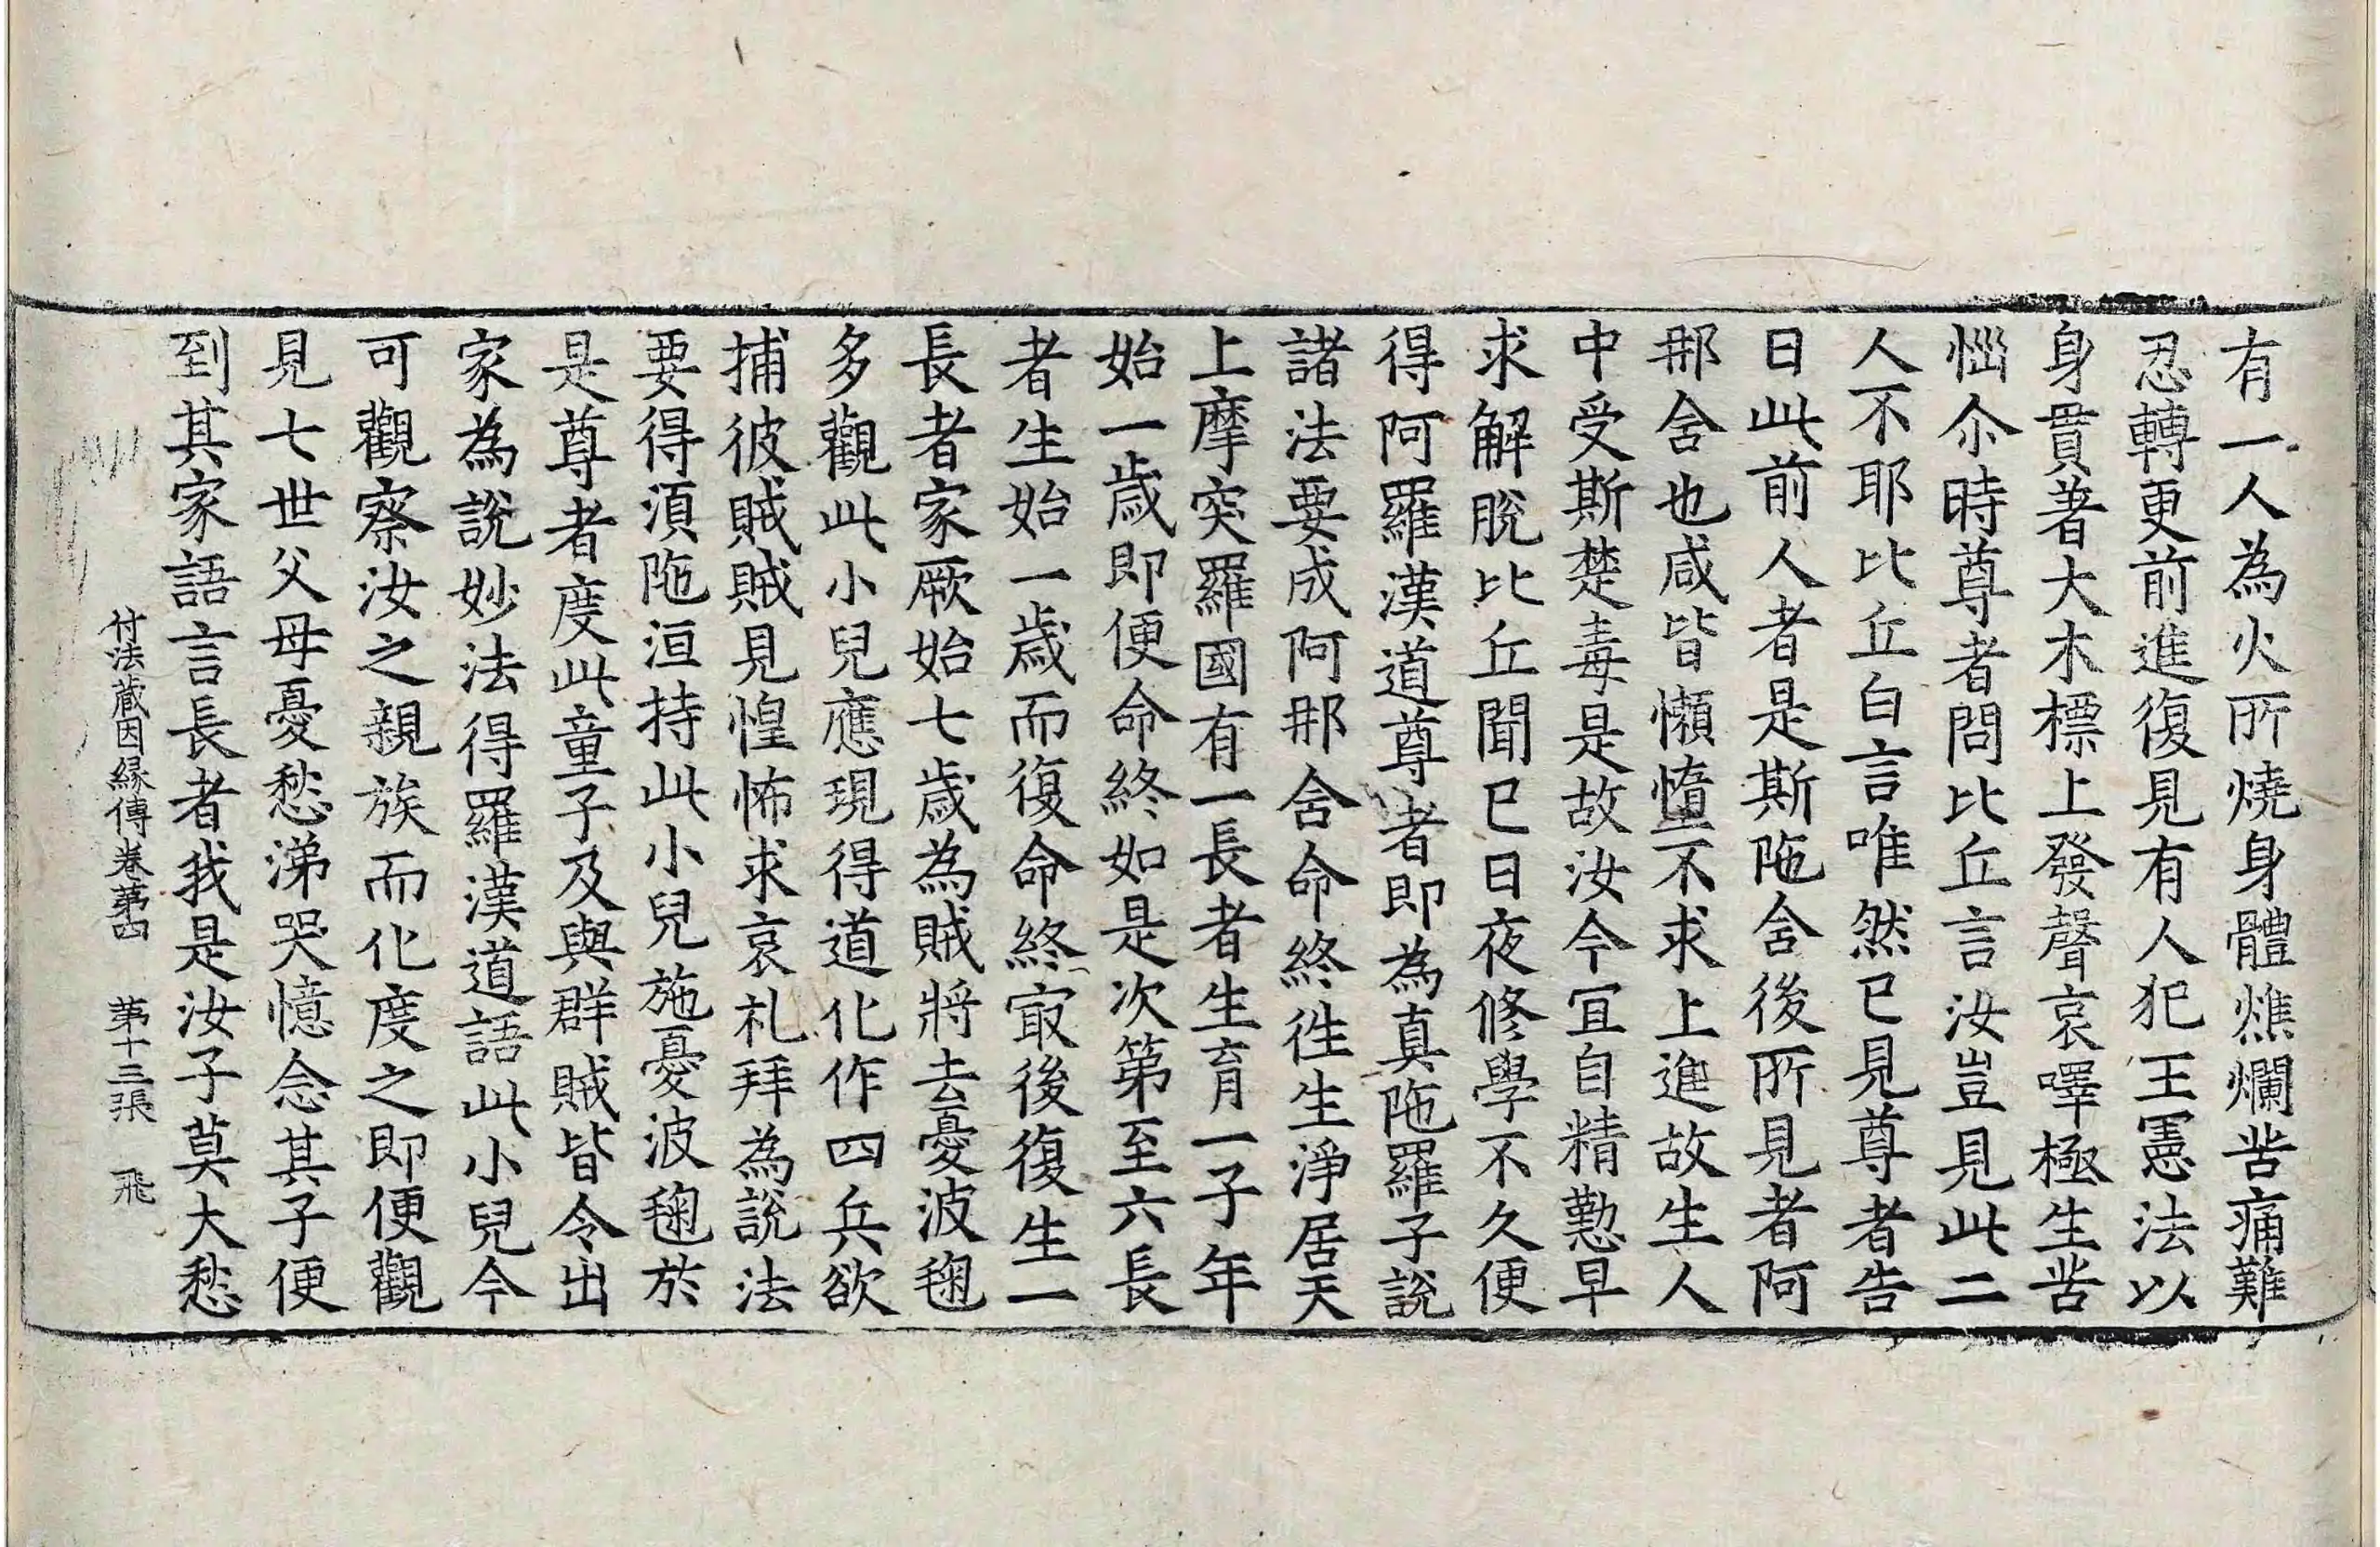 有一人為火所燒身體燋爛苦痛難
忍轉更前進復見有人犯王憲法以
身貫著大木標上發聲哀嘷極生苦
惱尒時尊者問比丘言汝豈見此二
人不耶比丘白言唯然已見尊者告
曰此前人者是斯陁舍後所見者阿
那舍也咸皆懶惰不求上進故生人
中受斯楚毒是故汝今宜自精懃早
求解脫比丘聞已日夜修學不久便
得阿羅漢道尊者即為真陁羅子說
諸法要成阿那舍命終徃生淨居天
上摩突羅國有一長者生育一子年
始一歲即便命終如是次第至六長
者生始一歲而復命終冣後復生一
長者家厥始七歲為賊將去憂波毱
多觀此小兒應現得道化作四兵欲
捕彼賊賊見惶怖求哀礼拜為說法
要得湏陁洹持此小兒施憂波毱於
是尊者度此童子及與群賊皆令出
家為說妙法得羅漢道語此小兒今
可觀察汝之親族而化度之即便觀
見七世父母憂愁涕哭憶念其子便
到其家語言長者我是汝子莫大愁
付法藏因縁傳卷苐四 苐十三張 飛